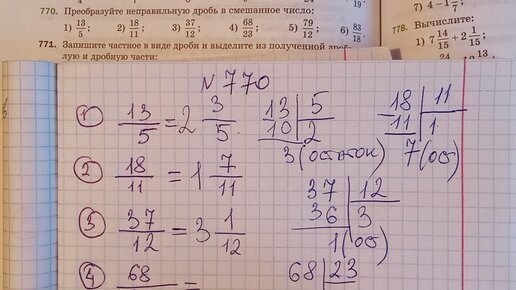 770. Преобразуйте неправильную дробь в смешанное число:
1) 13/5; 2) 18/11; 3) 37/12; 4) 68/23; 5) 79/12; 6) 83/18.
771. Запишите частное в виде дроби и выделите из полученной дроби
лую и дробную части:
7) 4 − 1
778. Вычислите:
1) 7 14/15 + 2 1/15;
N 770
① 13/5 = 2 3/5 13 | 5
10 2
3 (остаток)
18 | 11
11 1
7 (ост)
② 18/11 = 1 7/11
③ 37/12 = 3 1/12 37 | 12
36 3
1 (ост)
④ 68 = 68 | 23